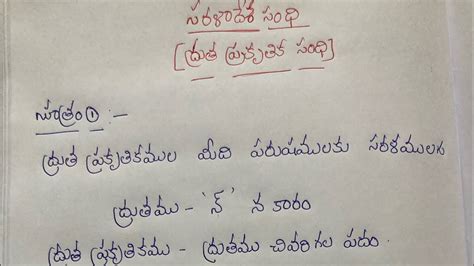 సరళాదేశ సంధి
[ద్రుత ప్రకృతిక సంధి]
సూత్రం① :-
ద్రుత ప్రకృతికముల మీది పరుషములకు సరళములగు
ద్రుతము - 'న్' న కారం
ద్రుత ప్రకృతికము - ద్రుతము చివరిగల పదం.